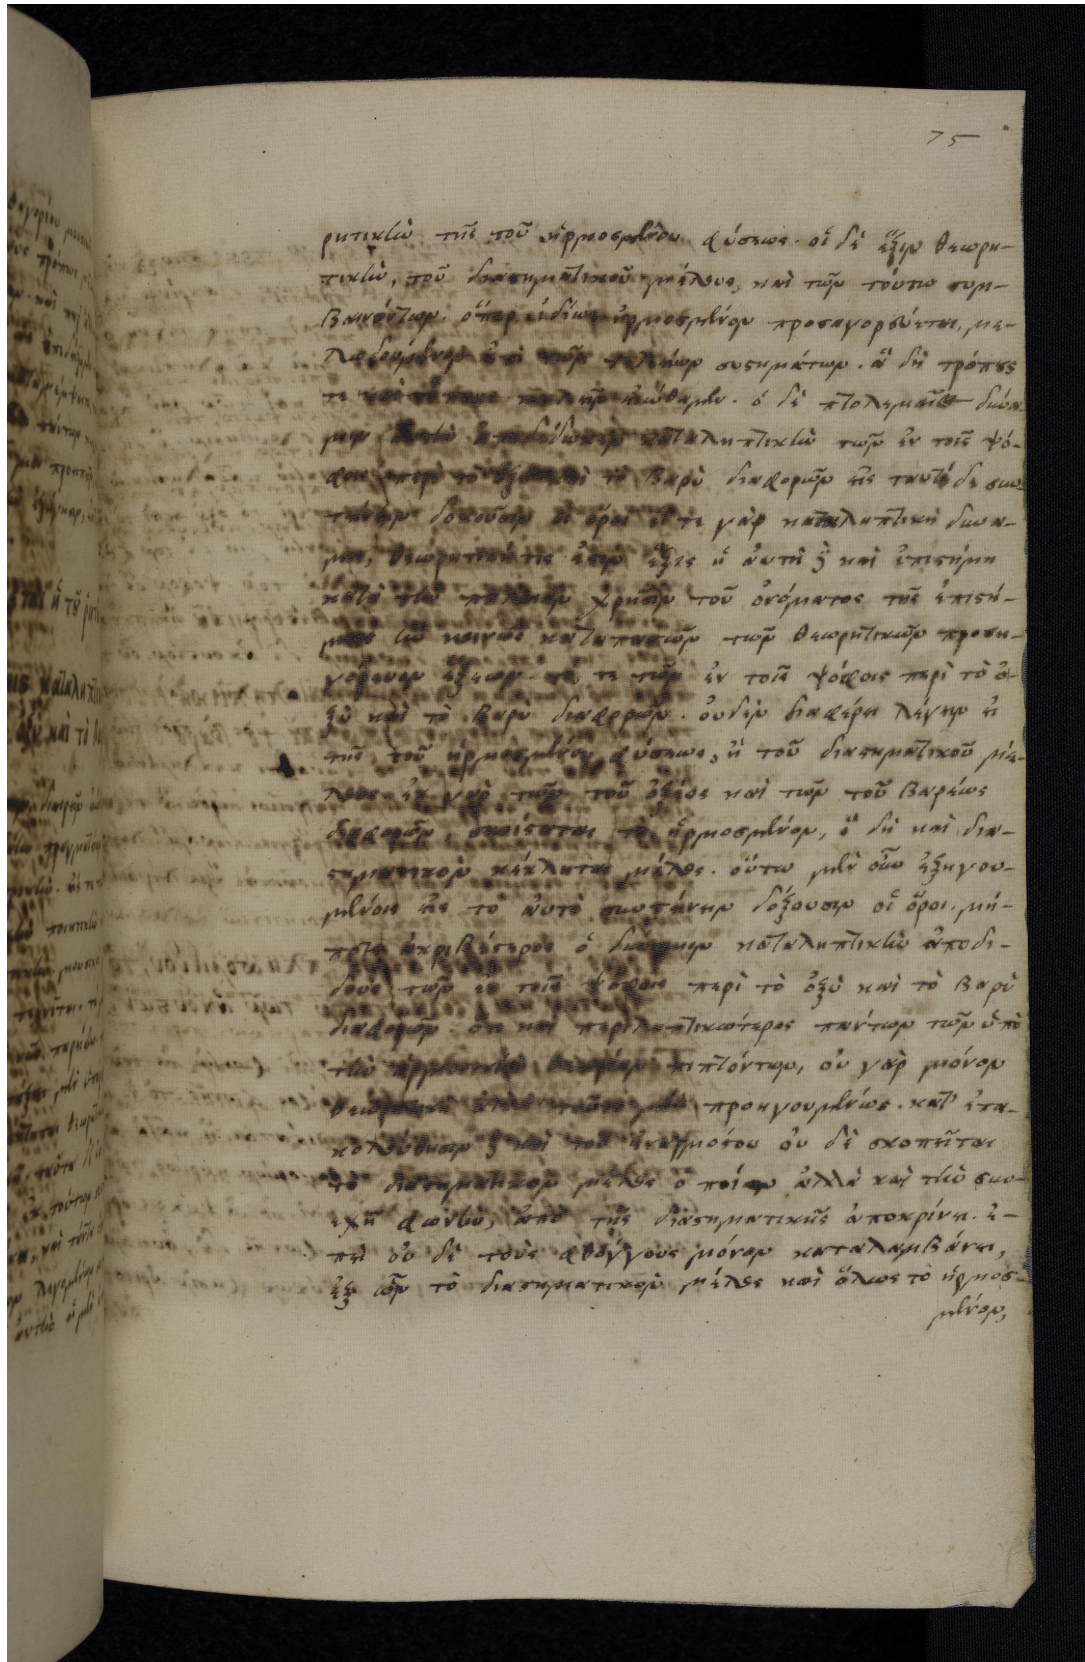 75
ρητικὴν τῆς τοῦ ἡρμοσμένου φύσεως. οἱ δὲ ἕξιν θεωρη-
τικὴν, τοῦ διαστηματικοῦ μέλους, καὶ τῶν τούτω συμ-
βαινόντων. ὅπερ ἰδίως ἡρμοσμένον προσαγορεύεται, με-
λῳδούμενον ἐπὶ τῶν τελείων συστημάτων. ἃ δὴ τρόπους
τε καὶ τόνους καλεῖν εἰώθαμεν. ὁ δὲ πτολεμαῖος δύνα-
μιν αὐτὴν ἀποδέδωκεν καταληπτικὴν τῶν ἐν τοῖς ψό-
φοις περὶ τὸ ὀξὺ καὶ τὸ βαρὺ διαφορῶν εἰς ταυτὸ δὲ συν-
τείνειν δοκοῦσιν οἱ ὅροι εἴ τε γὰρ καταληπτικὴ δύνα-
μις, θεωρητική τις ἐστὶν ἕξις ἡ αὐτὴ δὲ καὶ ἐπιστήμη
κατὰ τὴν παλαιὰν χρῆσιν τοῦ ὀνόματος τῆς ἐπιστή-
μης ἣν κοινῶς καταπασῶν τῶν θεωρητικῶν προση-
γόρευον ἕξεων. τό τε τῶν ἐν τοῖς ψόφοις περὶ τὸ ὀ-
ξὺ καὶ τὸ βαρὺ διαφορῶν. οὐδὲν διαφέρει λέγειν ἢ
τῆς τοῦ ἡρμοσμένου φύσεως, ἢ τοῦ διαστηματικοῦ μέ-
λους ἐκ γὰρ τῶν τοῦ ὀξέος καὶ τῶν τοῦ βαρέως
διαφορῶν, συνίσταται τὸ ἡρμοσμένον, ὃ δὴ καὶ δια-
στηματικὸν κέκληται μέλος. οὕτω μὲν οὖν ἐξηγου-
μένοις εἰς τὸ αὐτὸ συντείνειν δόξουσιν οἱ ὅροι. μή-
ποτε ἀκριβέστερος ὁ δύναμιν καταληπτικὴν ἀποδι-
δοὺς τῶν ἐν τοῖς ψόφοις περὶ τὸ ὀξὺ καὶ τὸ βαρὺ
διαφορῶν. ὅτι καὶ περιληπτικώτερος πάντων τῶν ὑπὸ
τὴν ἁρμονικὴν θεωρίαν πιπτόντων, οὐ γὰρ μόνον
θεωρητικὴ τοῦ προηγουμένως. κατ' ἐπα-
κολούθησιν δὲ καὶ τοῦ ἀναρμόστου οὐ δὲ σκοπεῖται
τὸ διαστηματικὸν μέλος ὁποῖον ἀλλὰ καὶ τὴν συν-
εχῆ φωνὴν, ἀπὸ τῆς διαστηματικῆς ἀποκρίνει. ἐ-
πεὶ οὐ δὲ τοὺς φθόγγους μόνον καταλαμβάνει,
ἐξ ὧν τὸ διαστηματικὸν μέλος καὶ ὅλως τὸ ἡρμοσ-
μένον,